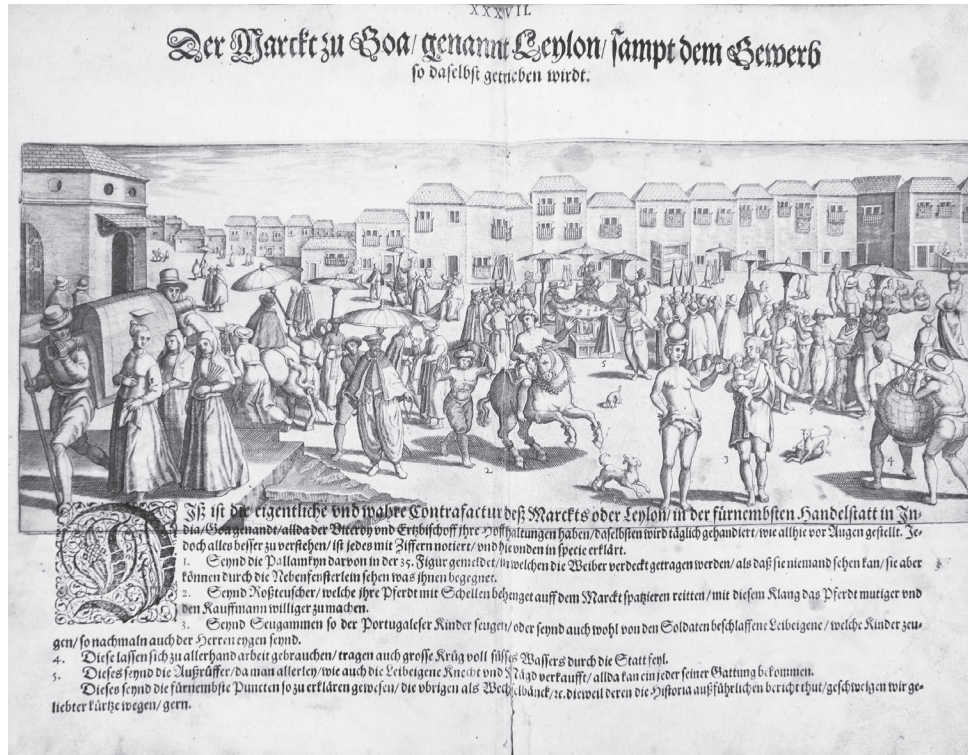 XXXVII.
Der Marckt zu Goa/ genannt Leylon/ sampt dem Gewerb
so daselbst getrieben wirdt.
5
2
3
4
DIß ist die eigentliche vnd wahre Contrafactur deß Marckts oder Leylon/ in der fürnembsten Handelstatt in In-
dia/ Goa genandt/ allda der Viceroy vnd Ertzbischoff jhre Hoffhaltungen haben/ daselbsten wird täglich gehandiert/ wie allhie vor Augen gestellt. Je-
doch alles besser zu verstehen/ ist jedes mit Ziffern notiert/ vnd hievnden in specie erklärt.
1. Seynd die Pallamkyn darvon in der 35. Figur gemeldet/ in welchen die Weiber verdeckt getragen werden/ als daß sie niemand sehen kan/ sie aber
können durch die Nebenfensterlein sehen was jhnen begegnet.
2. Seynd Roßteuscher/ welche jhre Pferdt mit Schellen behenget auff dem Marckt spatzieren reitten/ mit diesem Klang das Pferdt mutiger vnd
den Kauffmann williger zu machen.
3. Seynd Seugammen so der Portugaleser Kinder seugen/ oder seynd auch wohl von den Soldaten beschlaffene Leibeigene/ welche Kinder zeu-
gen/ so nachmaln auch der Herren eygen seynd.
4. Diese lassen sich zu allerhand arbeit gebrauchen/ tragen auch grosse Krüg voll süsses Wassers durch die Statt feyl.
5. Dieses seynd die Außrüffer/ da man allerley/ wie auch die Leibeigene Knecht vnd Mägd verkaufft/ allda kan ein jeder seiner Gattung bekommen.
Dieses seynd die fürnembste Puncten so zu erklären gewesen/ die vbrigen als Wechselbänck/ ꝛc. dieweil deren die Historia außführlichen bericht thut/ geschweigen wir ge-
liebter kürtze wegen/ gern.